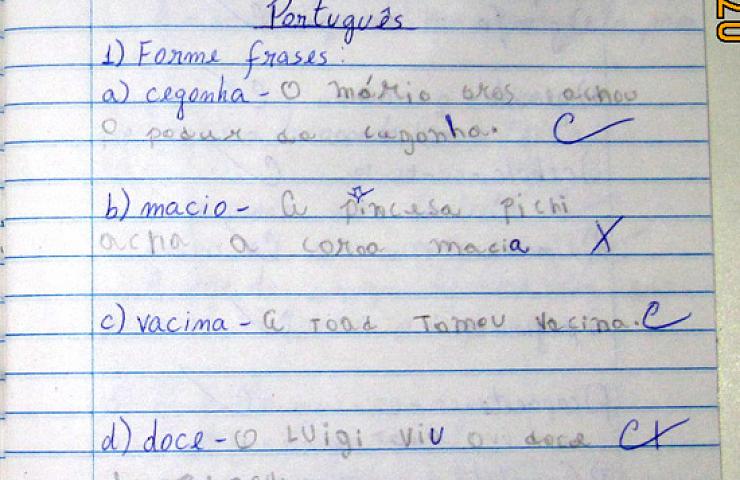 Português
1) Forme frases:
a) cegonha - O mário achou
o da cegonha.
b) macio - a pincesa pichi
acha a coroa macia
c) vacina - a toad Tomou vacina.
d) doce - O LUigi ViU o doce